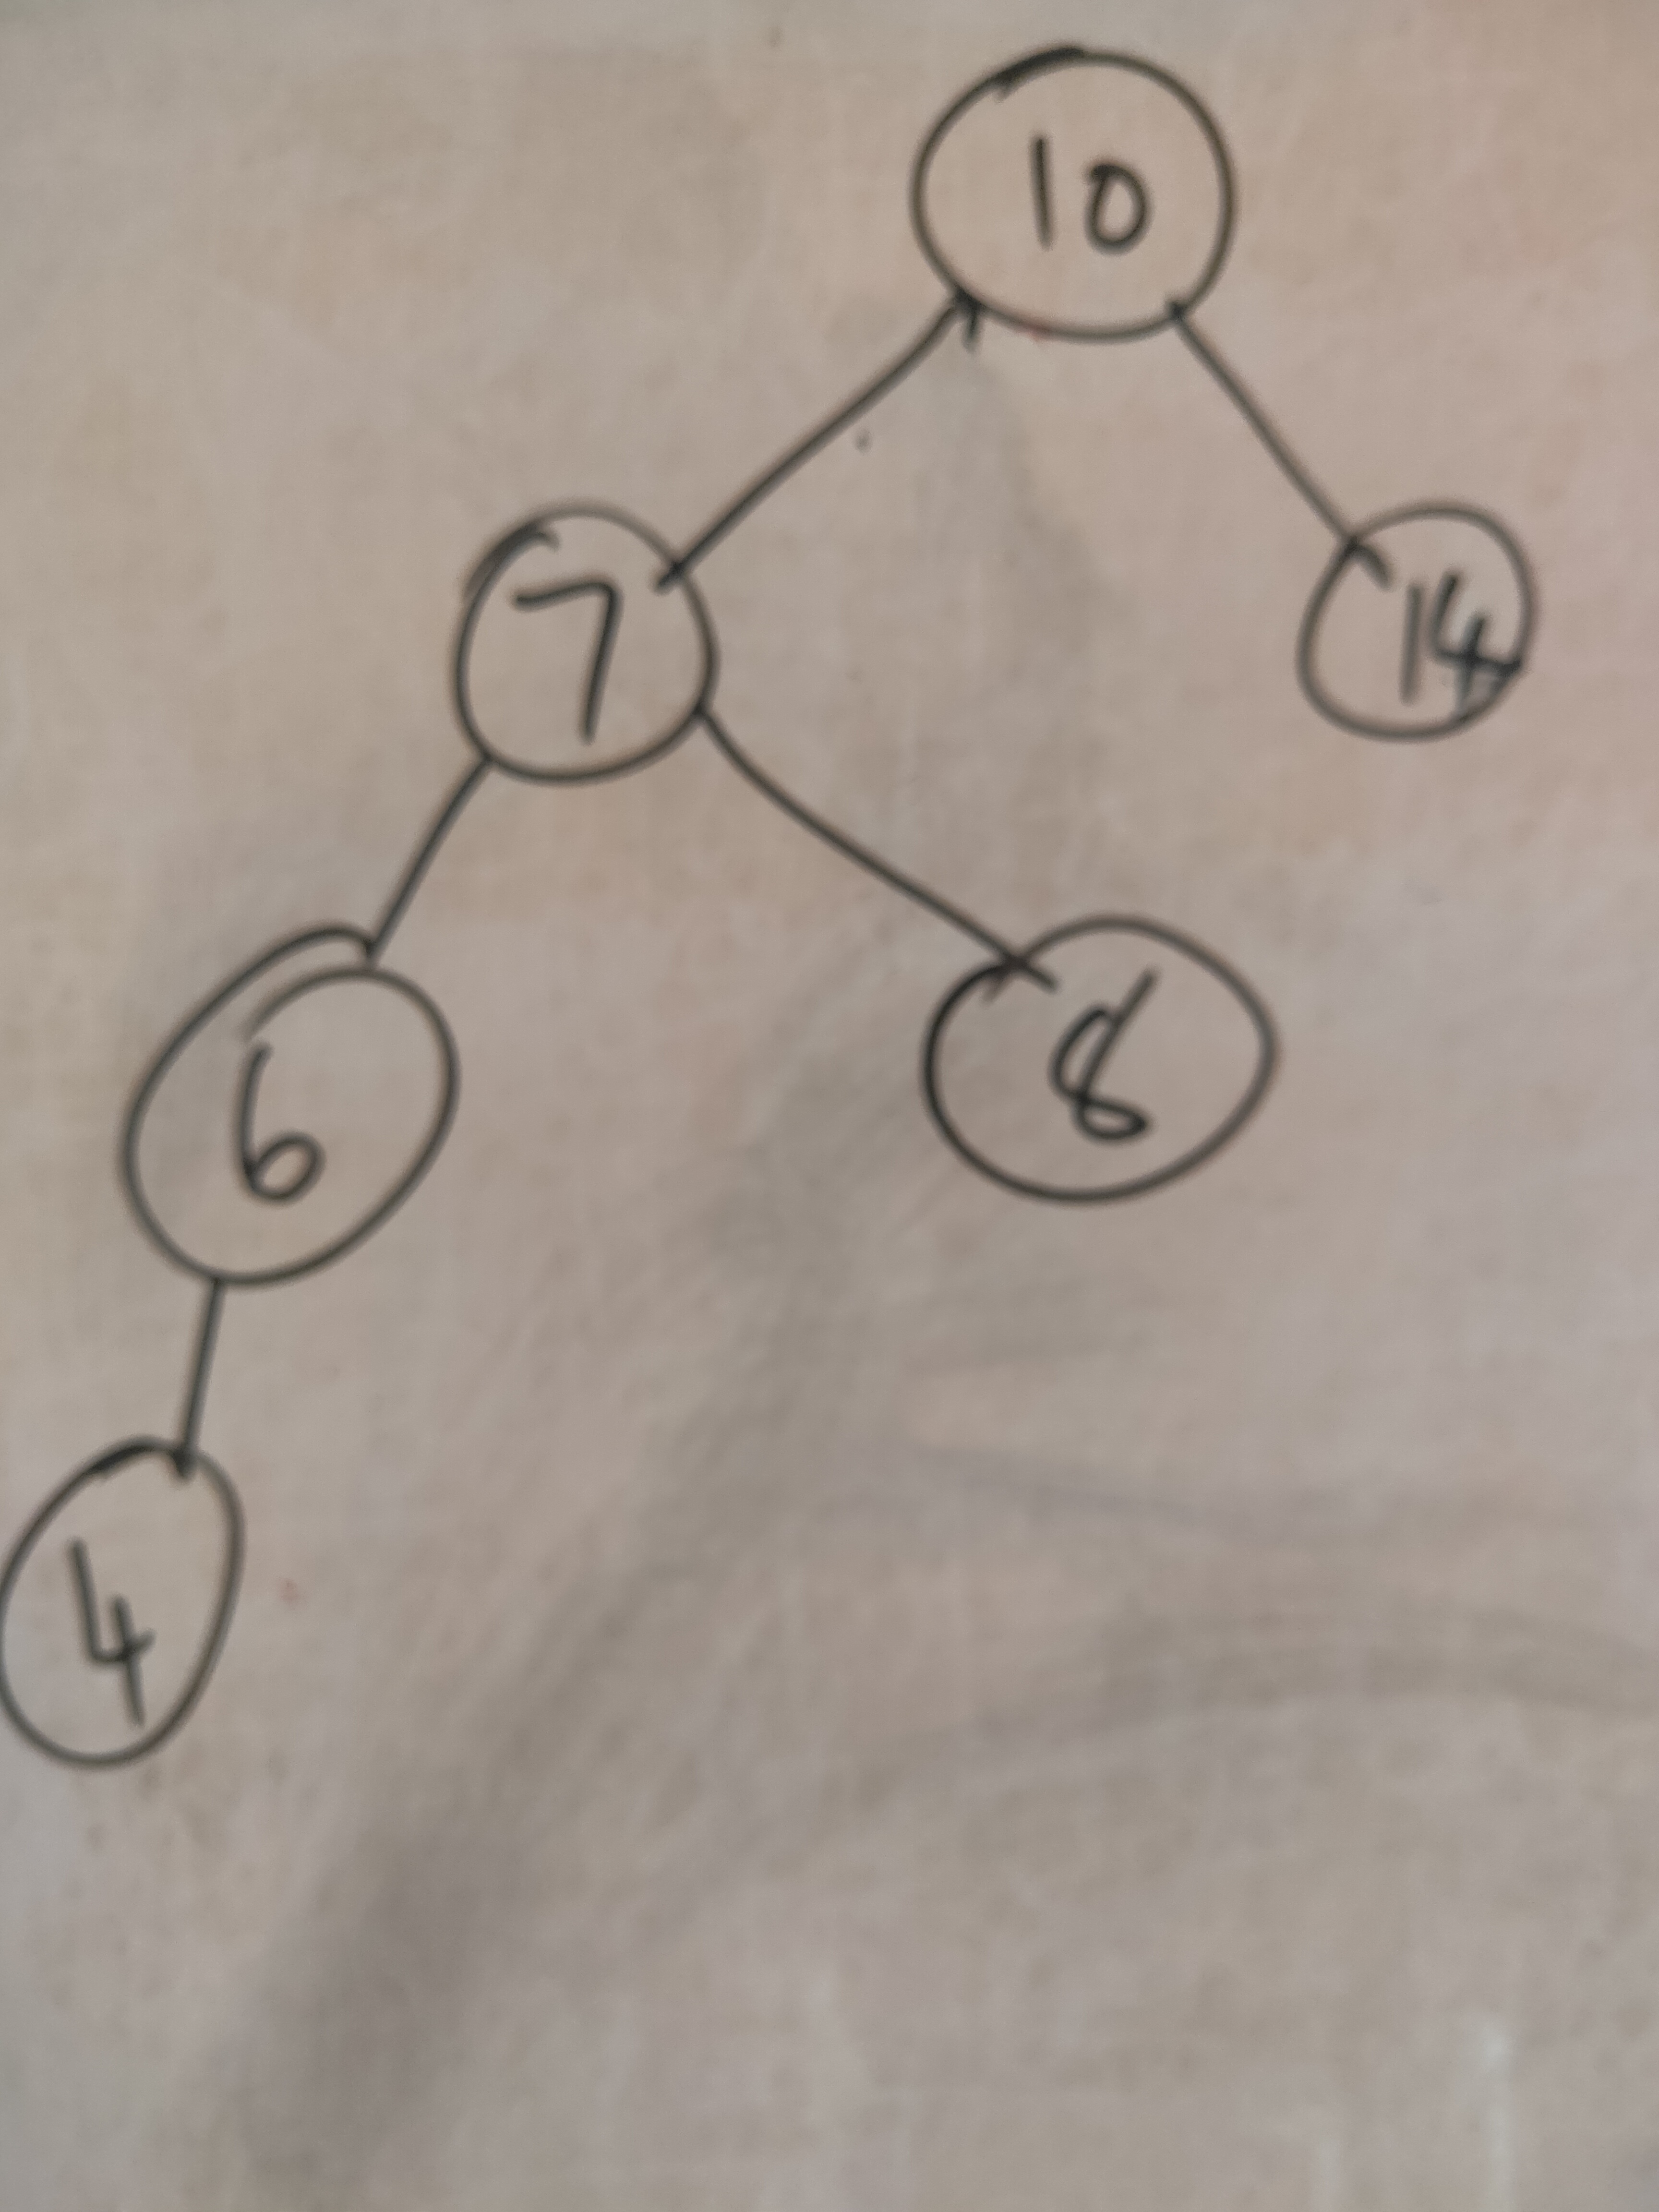 10
7 14
6 8
4